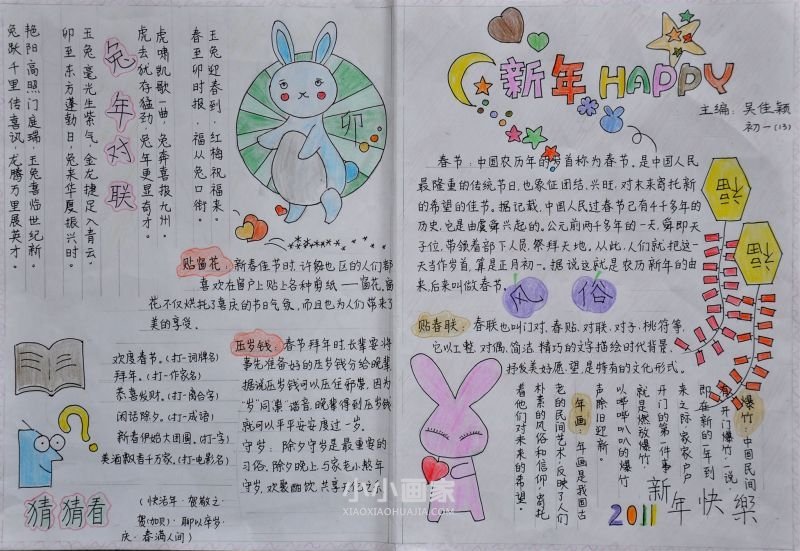 玉兔迎春到，红梅祝福来。
春至卯时报，福从兔口衔。
虎啸凯歌一曲，兔奔喜报九州。
虎去犹存猛劲，兔年更显奇才。
兔年对联
玉兔毫光生紫气，金龙捷足入青云。
卯至东方蓬勃日，兔来华夏振兴时。
艳阳高照门庭瑞，玉兔喜临世纪新。
兔跃千里传喜讯，龙腾万里展英才。
卯
贴窗花：新春佳节时，许多地区的人们都
喜欢在窗户上贴上各种剪纸——窗花。窗
花不仅烘托了喜庆的节日气氛，而且也为人们带来了
美的享受。
欢度春节。(打一词牌名)
拜年。(打一作家名)
恭喜发财。(打一离合字)
闲话除夕。(打一成语)
新春伊始大团圆。(打一字)
美酒飘香千万家。(打一电影名)
猜猜看
(快活年·贺敬之·
贾(加贝)·聊以卒岁·
庆·春满人间)
压岁钱：春节拜年时，长辈要将
事先准备好的压岁钱分给晚辈，
据说压岁钱可以压住邪祟，因为
“岁”同“祟”谐音，晚辈得到压岁钱
就可以平平安安度过一岁。
守岁：除夕守岁是最重要的
习俗，除夕晚上与家老小熬年
守岁，欢聚酣饮，共享天伦之乐。
新年HAPPY
主编：吴佳颖
初一(13)
春节：中国农历年的岁首称为春节。是中国人民
最隆重的传统节日，也象征团结、兴旺，对未来寄托新
的希望的佳节。据记载，中国人民过春节已有4千多年的
历史，它是由虞舜兴起的。公元前两千多年的一天，舜即天
子位，带领着部下人员，祭拜天地。从此，人们就把这一
天当作岁首，算是正月初一。据说这就是农历新年的由
来，后来叫做春节。
福
福
风俗
贴春联：春联也叫门对、春贴、对联、对子、桃符等，
它以工整、对偶、简洁、精巧的文字描绘时代背景、
抒发美好愿望，是特有的文化形式。
爆竹：中国民间
有“开门爆竹”一说。
即在新的一年到
来之际，家家户户
开门的第一件事
就是燃放爆竹，
以哔哔叭叭的爆竹
声除旧迎新。
年画：年画是我国古
老的民间艺术，反映了人们
朴素的风俗和信仰，寄托
着他们对未来的希望。
2011
新年快樂
小小画家
XIAOXIAOHUAJIA.COM